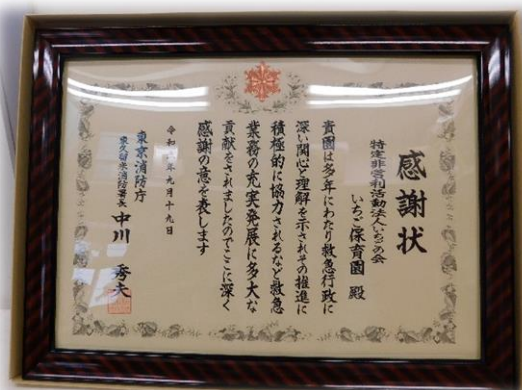 感謝状
特定非営利活動法人いちごの会
いちご保育園 殿
貴園は多年にわたり救急行政に
深い関心と理解を示されその推進に
積極的に協力されるなど救急
業務の充実発展に多大な
貢献をされましたのでここに深く
感謝の意を表します
令和 年九月十九日
東京消防庁
東久留米消防署長 中川 秀夫